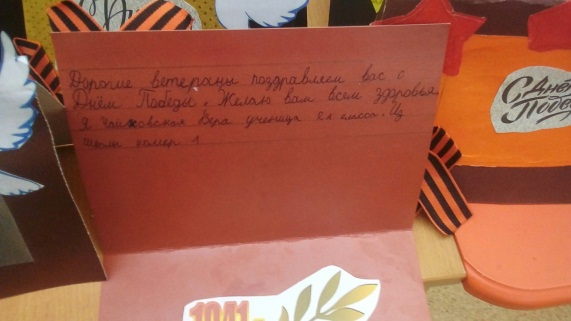 Дорогие ветераны поздравляем вас с
Днём Победы. Желаю вам всем здоровья.
Я Вера ученица 2г класса. Из
школы номер 1
1941-
С Днём
Победы